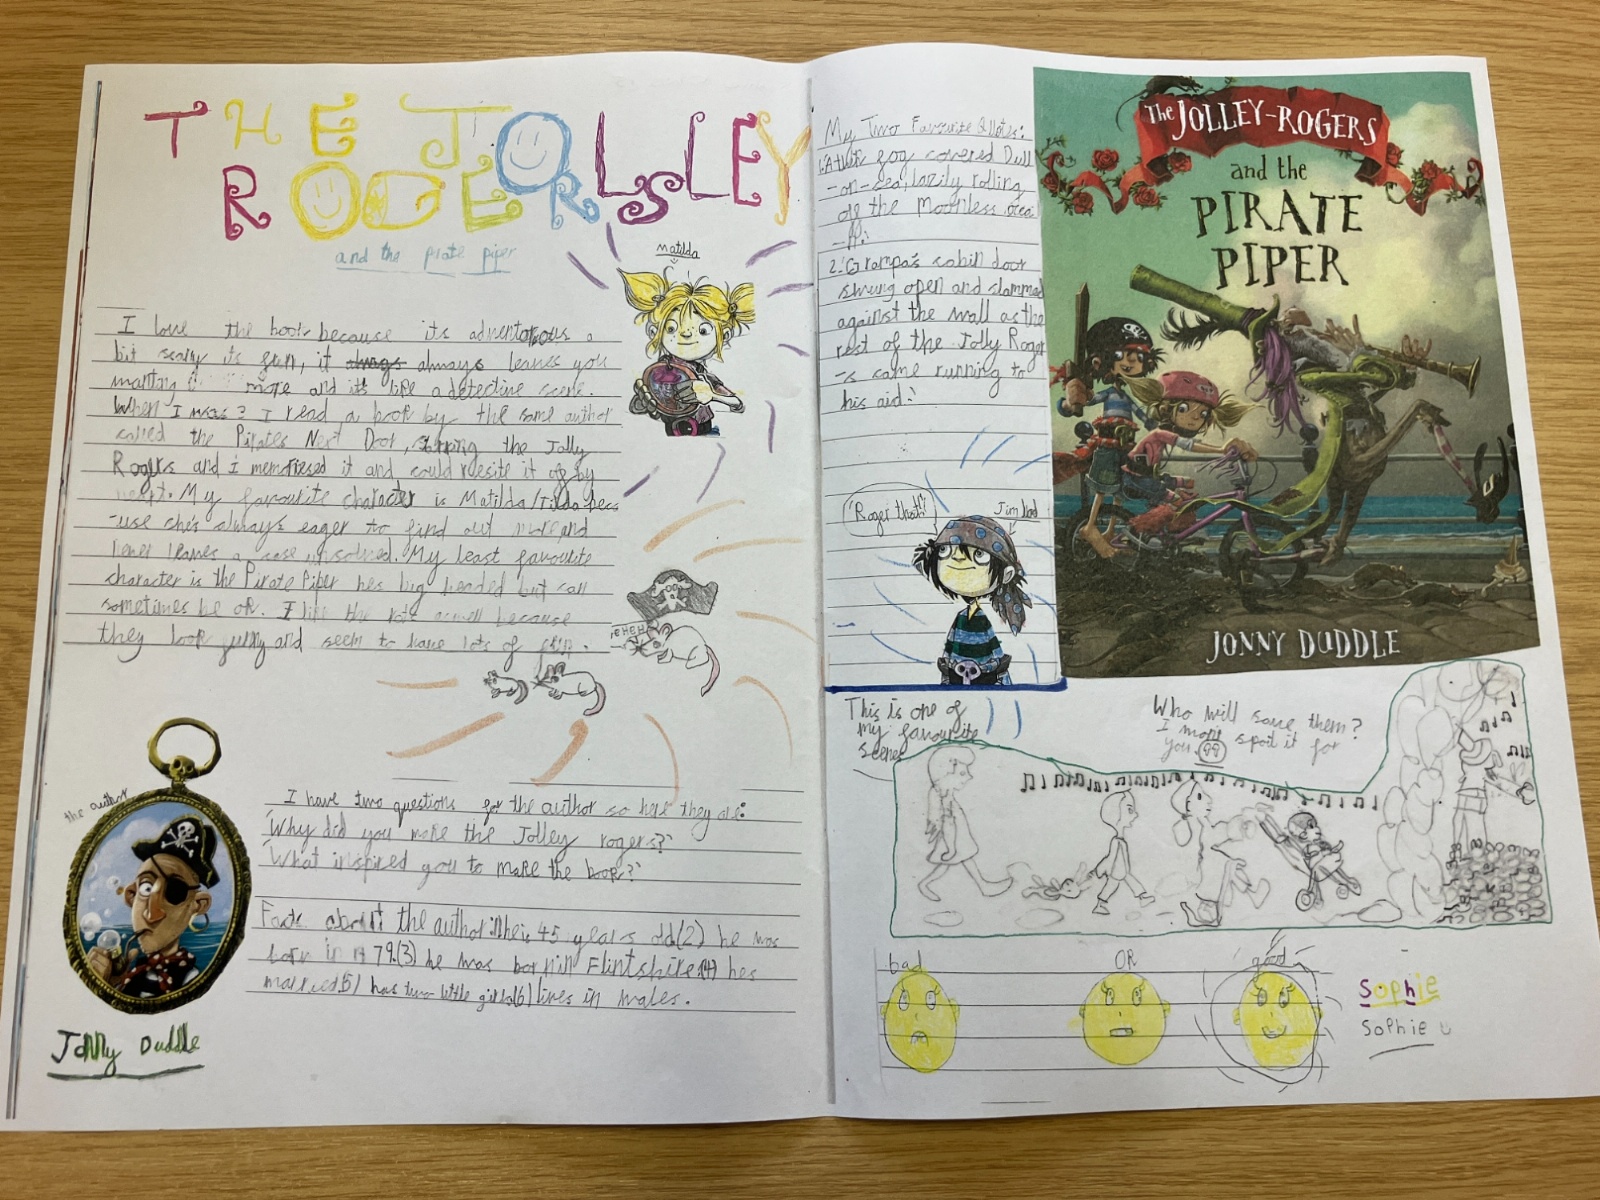 THE JOLLEY
ROGERS
and the pirate piper
Matilda
I love the book because its adventorous a
bit scary its fun, it always leaves you
wanting more and it's like a detective scene.
When I was I read a book by the same author
called the Pirates Next Door, the Jolly
Rogers and i memrised it and could resite it of by
heart. My favourite character is Matilda/Tilda beca
-use she's always eager to find out more and
never leaves a case unsolved. My least favourite
character is the Pirate Piper hes big headed but can
sometimes be ok. I like the rats aswell because
they look funny and seem to have lots of fun.
the author
Jonny Duddle
I have two questions for the author so here they are:
'Why did you make the Jolley rogers?'
'What inspired you to make the book?'
Facts about the author: 45 years old(2) he was
born in 1979.(3) he was born in Flintshire(4) hes
married(5) has two little girls(6) lives in wales.
My Two Favourite Quotes:
1. A thick fog covered Dull
-on-sea, lazily rolling
off the moonless ocea
-n.'
2.'Grampa's cabin door
swung open and slammed
against the wall as the
rest of the Jolly Roger
-s came running to
his aid.'
'Roger that!'
Jim lad
The JOLLEY-ROGERS
and the
PIRATE
PIPER
JONNY DUDDLE
This is one of
my favourite
scenes
Who will save them?
I might spoil it for
you.
bad OR good
Sophie
Sophie